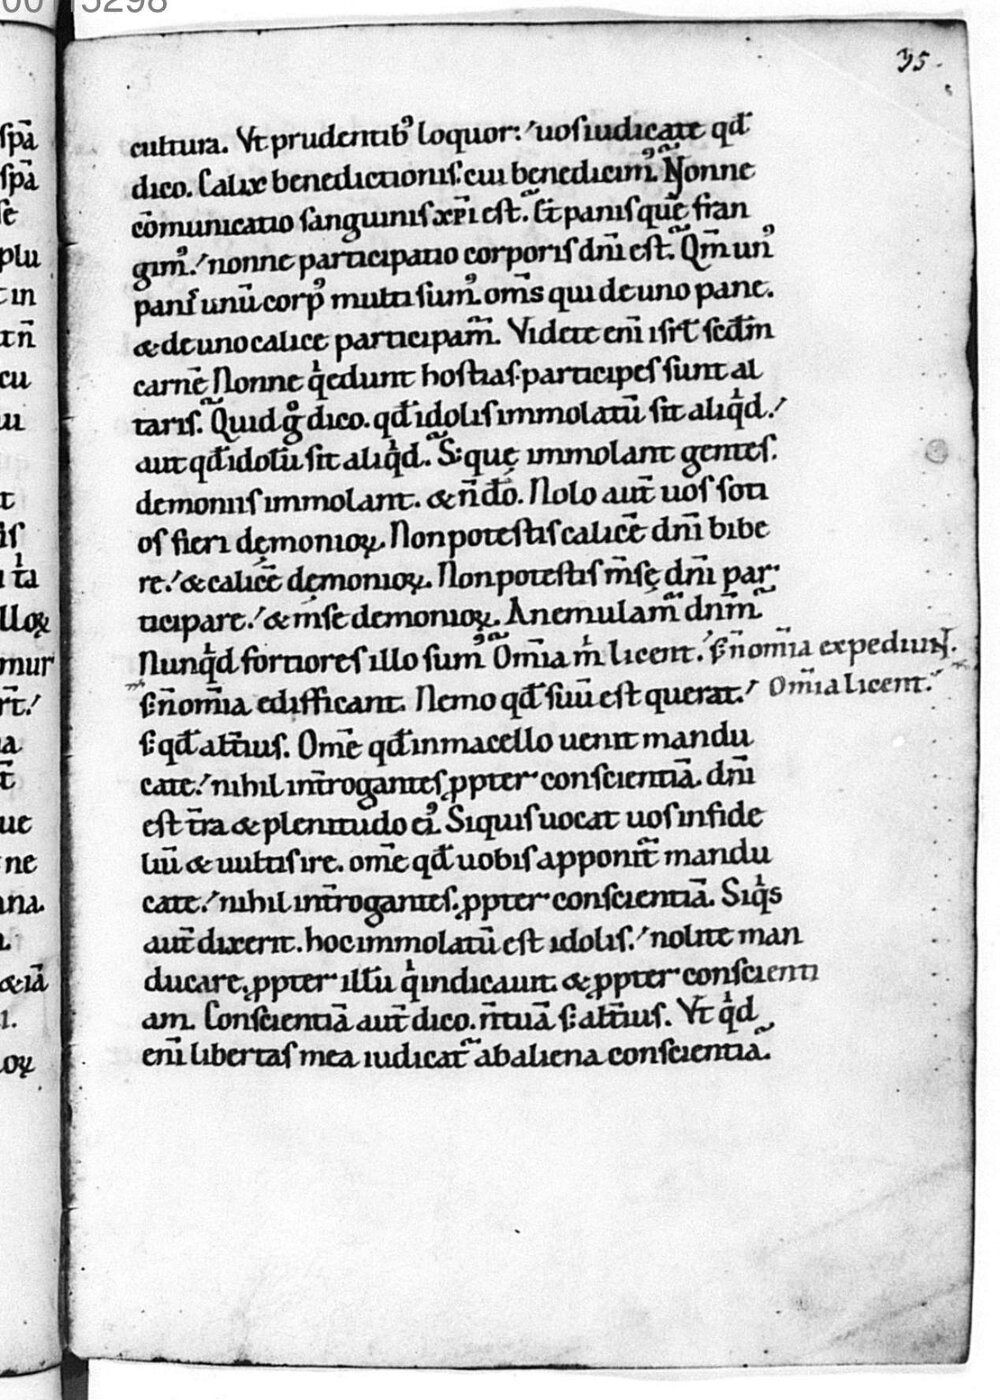 0015298
35.
cultura. Vt prudentib᾽ loquor: uos iudicate qđ
dico. Calix benedictionis: cui benedicim᾽. Nonne
cōmunicatio sanguinis xp̄i est. Et panis quē fran
gim᾽. nonne participatio corporis dn̄i est. Qm̄ un᾽
panis unū corp᾽ multi sum᾽. om̄s qui de uno pane.
& de uno calice participam̄. Videte eni̅ isrl̄ scd̄m
carnē Nonne qͥ edunt hostias. participes sunt al
taris. Quid gͦ dico. qđ idolis immolatū sit aliqͥd.
aut qđ idolū sit aliqͥd. S; quę immolant gentes.
demoniis immolant. & n̄ dō. Nolo aut̄ uos soti
os fieri dęmonioꝝ. Non potestis calicē dn̄i bibe
re. & calicē dęmonioꝝ. Non potestis m̄sę dn̄i par
ticipare. & m̄se demonioꝝ. An emulam̄ dn̄m
Nunqͥd fortiores illo sum᾽ Om̄ia mͥ licent. s; n̄ om̄ia expediuɴ.
s; n̄ om̄ia edifficant. Nemo qđ suū est querat. Om̄ia licent.
s; qđ alt̄ius. Om̄e qđ in macello uenit mandu
cate. nihil int̄rogantes ꝓpter conscientiā. dn̄i
est t̄ra & plenitudo ei᾽. Siquis uocat uos infide
liū & uultis ire. om̄e qđ uobis apponit̄ mandu
cate. nihil int̄rogantes. ꝓpter conscientiā. Siqͥs
aut̄ dixerit. hoc immolatū est idolis. nolite man
ducare. ꝓpter illū qͥ indicauit. & ꝓpter conscienti
am. Conscientiā aut̄ dico. n̄ tuā s; alt̄ius. Vt qͥd
eni̅ libertas mea iudicat̄ ab aliena conscientia.